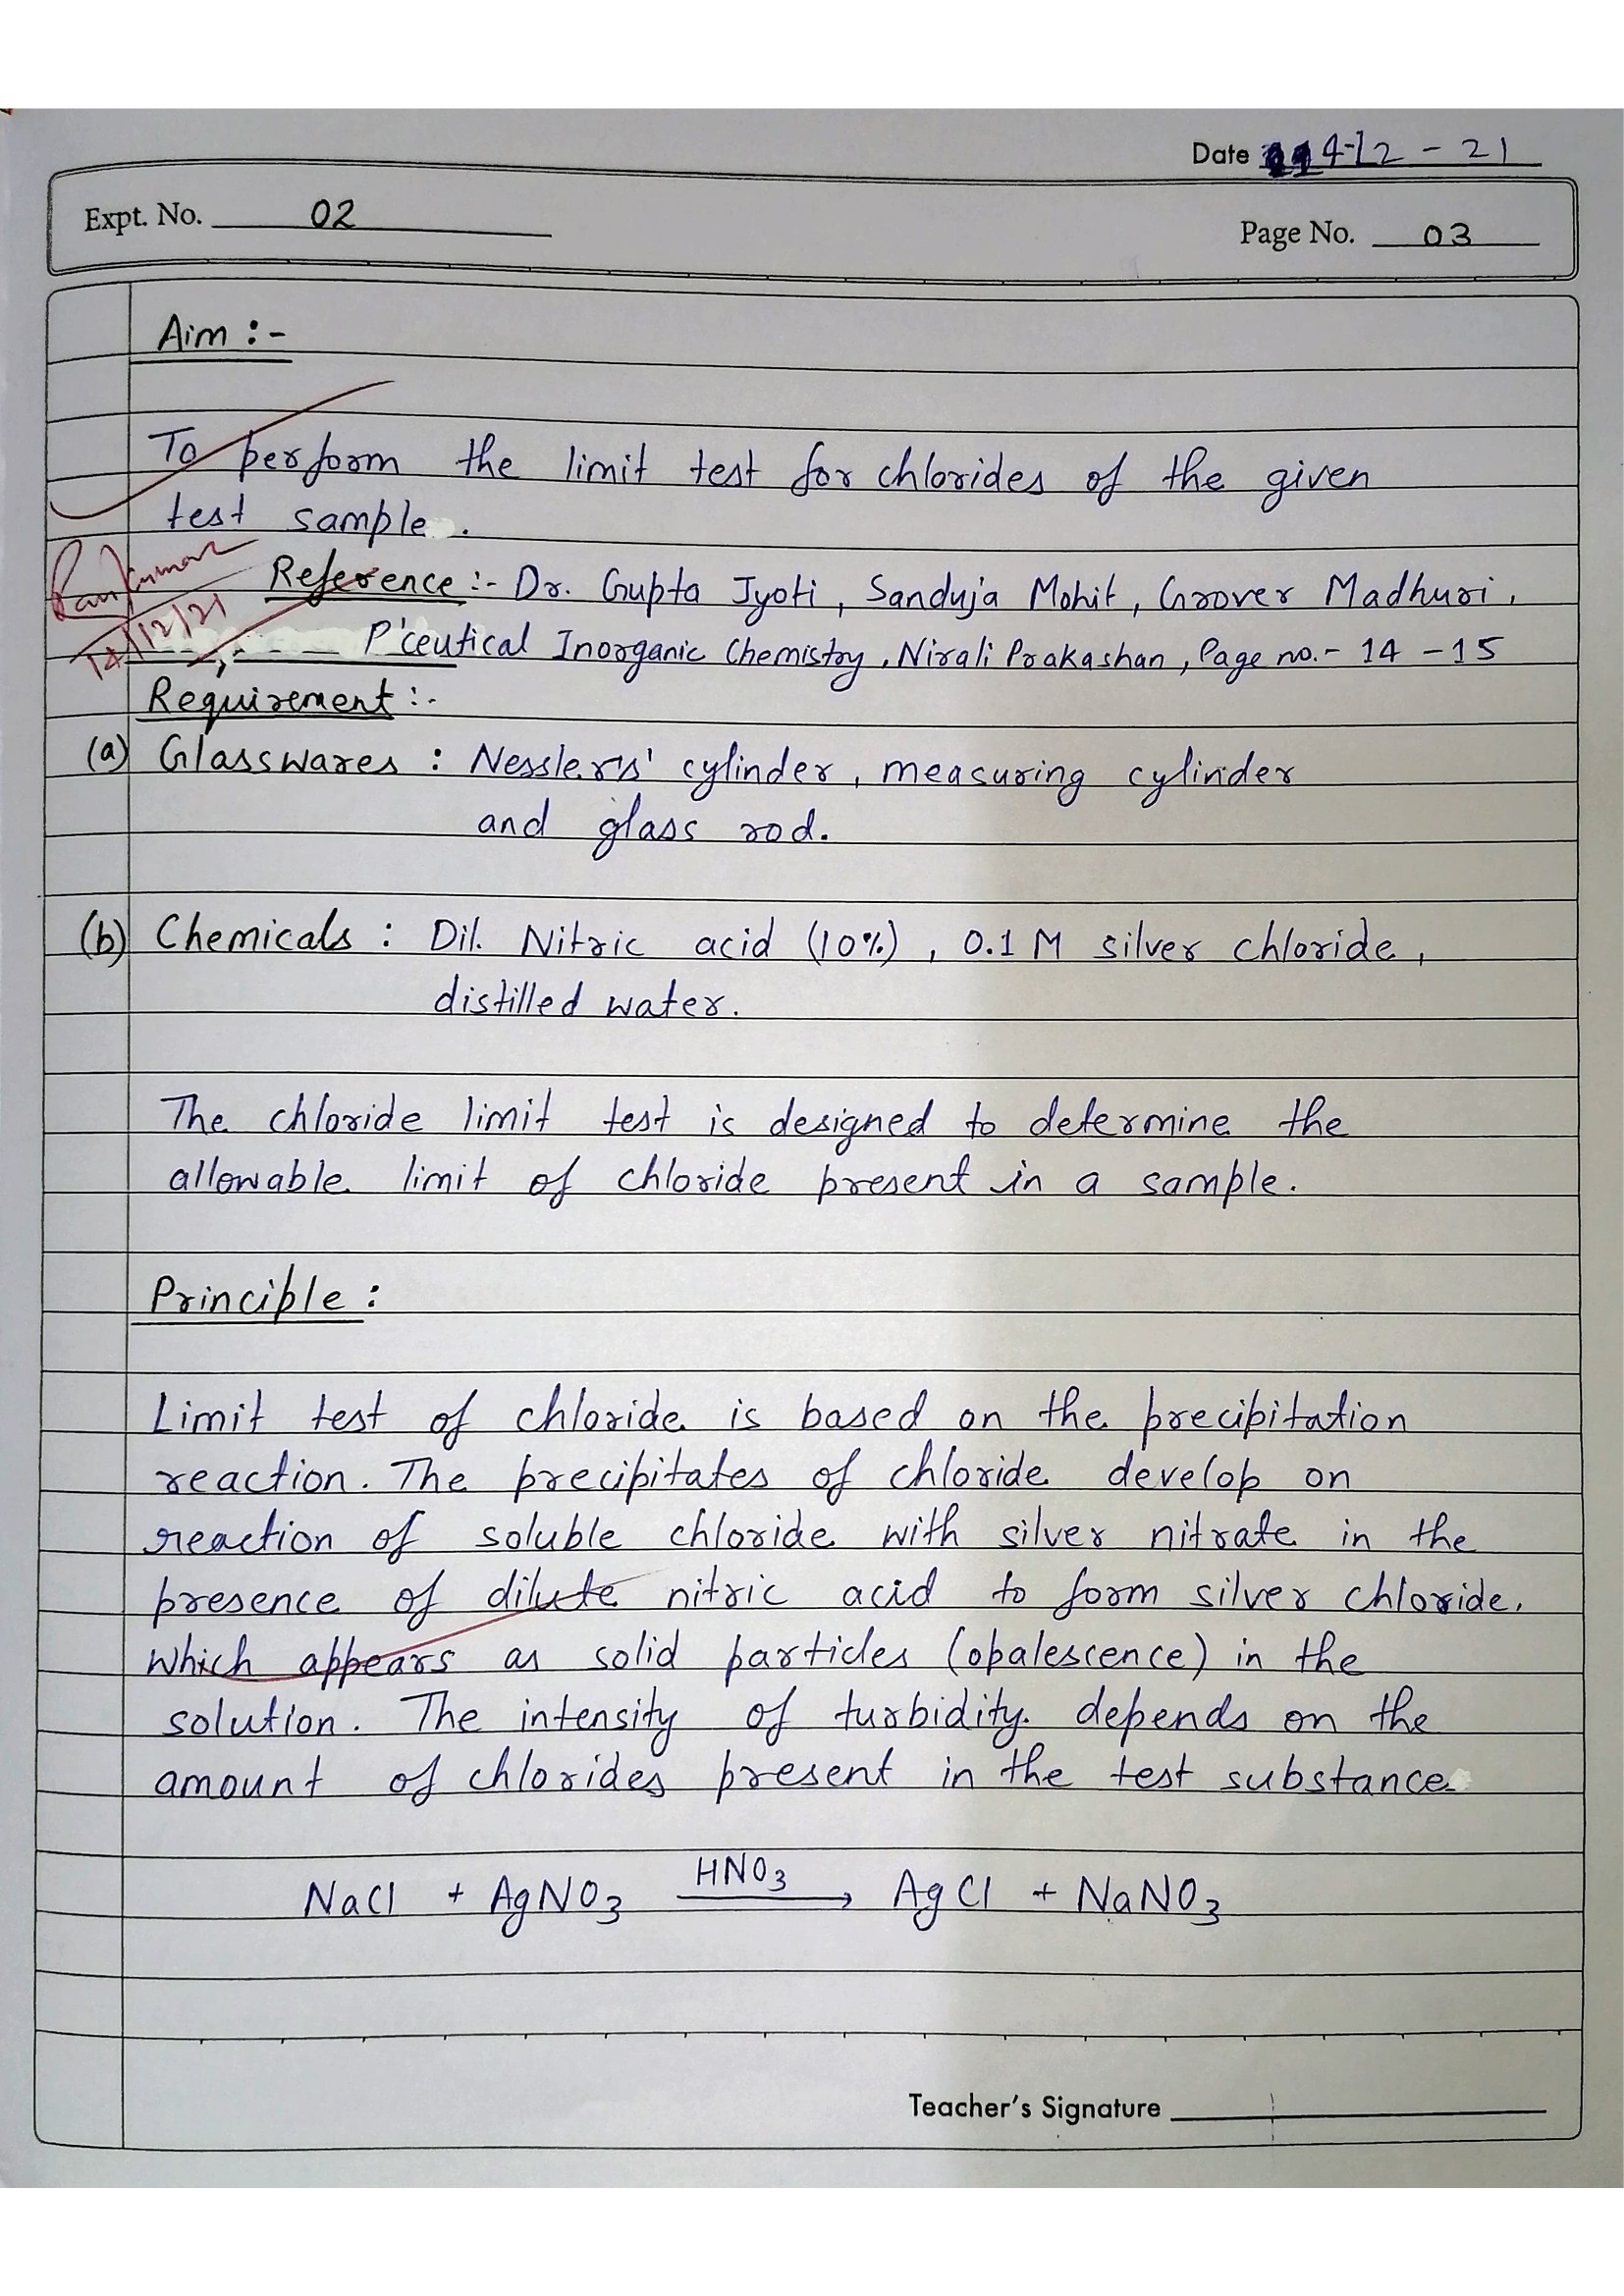 Date 4-12-21
Expt. No. 02
Page No. 03
Aim :-
To perform the limit test for chlorides of the given
test sample.
14/12/21
Reference :- Dr. Gupta Jyoti, Sanduja Mohit, Grover Madhuri,
P'ceutical Inorganic Chemistry, Nirali Prakashan, Page no.- 14 -15
Requirement :-
(a) Glasswares : Nesslers' cylinder, measuring cylinder
and glass rod.
(b) Chemicals : Dil. Nitric acid (10%), 0.1 M silver chloride,
distilled water.
The chloride limit test is designed to determine the
allowable limit of chloride present in a sample.
Principle :
Limit test of chloride is based on the precipitation
reaction. The precipitates of chloride develop on
reaction of soluble chloride with silver nitrate in the
presence of dilute nitric acid to form silver chloride.
which appears as solid particles (opalescence) in the
solution. The intensity of turbidity. depends on the
amount of chlorides present in the test substance
HNO3
NaCl + AgNO3 → AgCl + NaNO3
Teacher's Signature